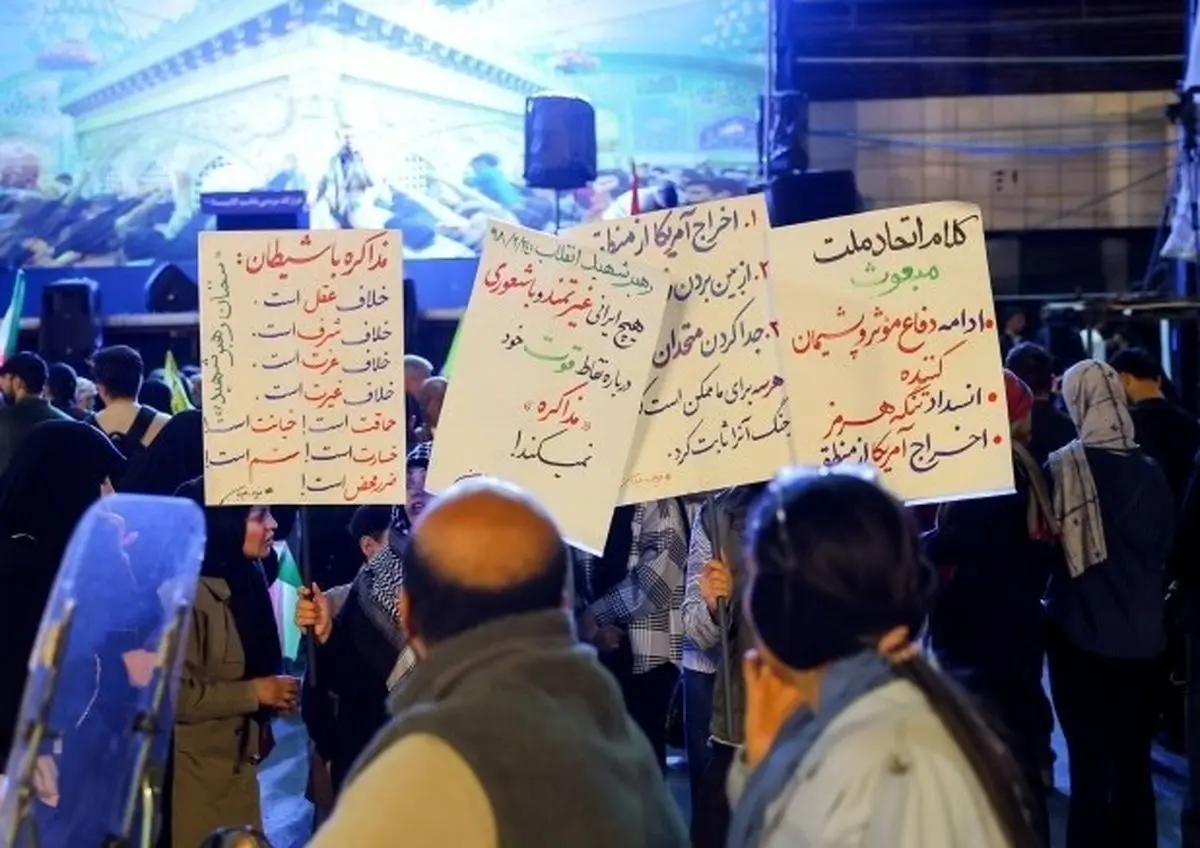 مذاکره با شیطان:
خلاف عقل است.
خلاف شرف است.
خلاف عزت است.
خلاف غیرت است.
حماقت است! خیانت است!
خسارت است! سم است!
ضرر محض است!
سخنان رهبر شهید
رهبر شهید انقلاب ۹۸/۲/۲۴
هیچ ایرانی غیرتمند و با شعوری
درباره نقاط قوت خود
«مذاکره»
نمیکند!
۱. اخراج آمریکا از منطقه
۲. از بین بردن
۳. جدا کردن متحدان
هر سه برای ما ممکن است
جنگ آنرا ثابت کرد.
کلام اتحاد ملت
مبعوث
• ادامه دفاع مؤثر و پشیمان
کننده
• انسداد تنگه هرمز
• اخراج آمریکا از منطقه